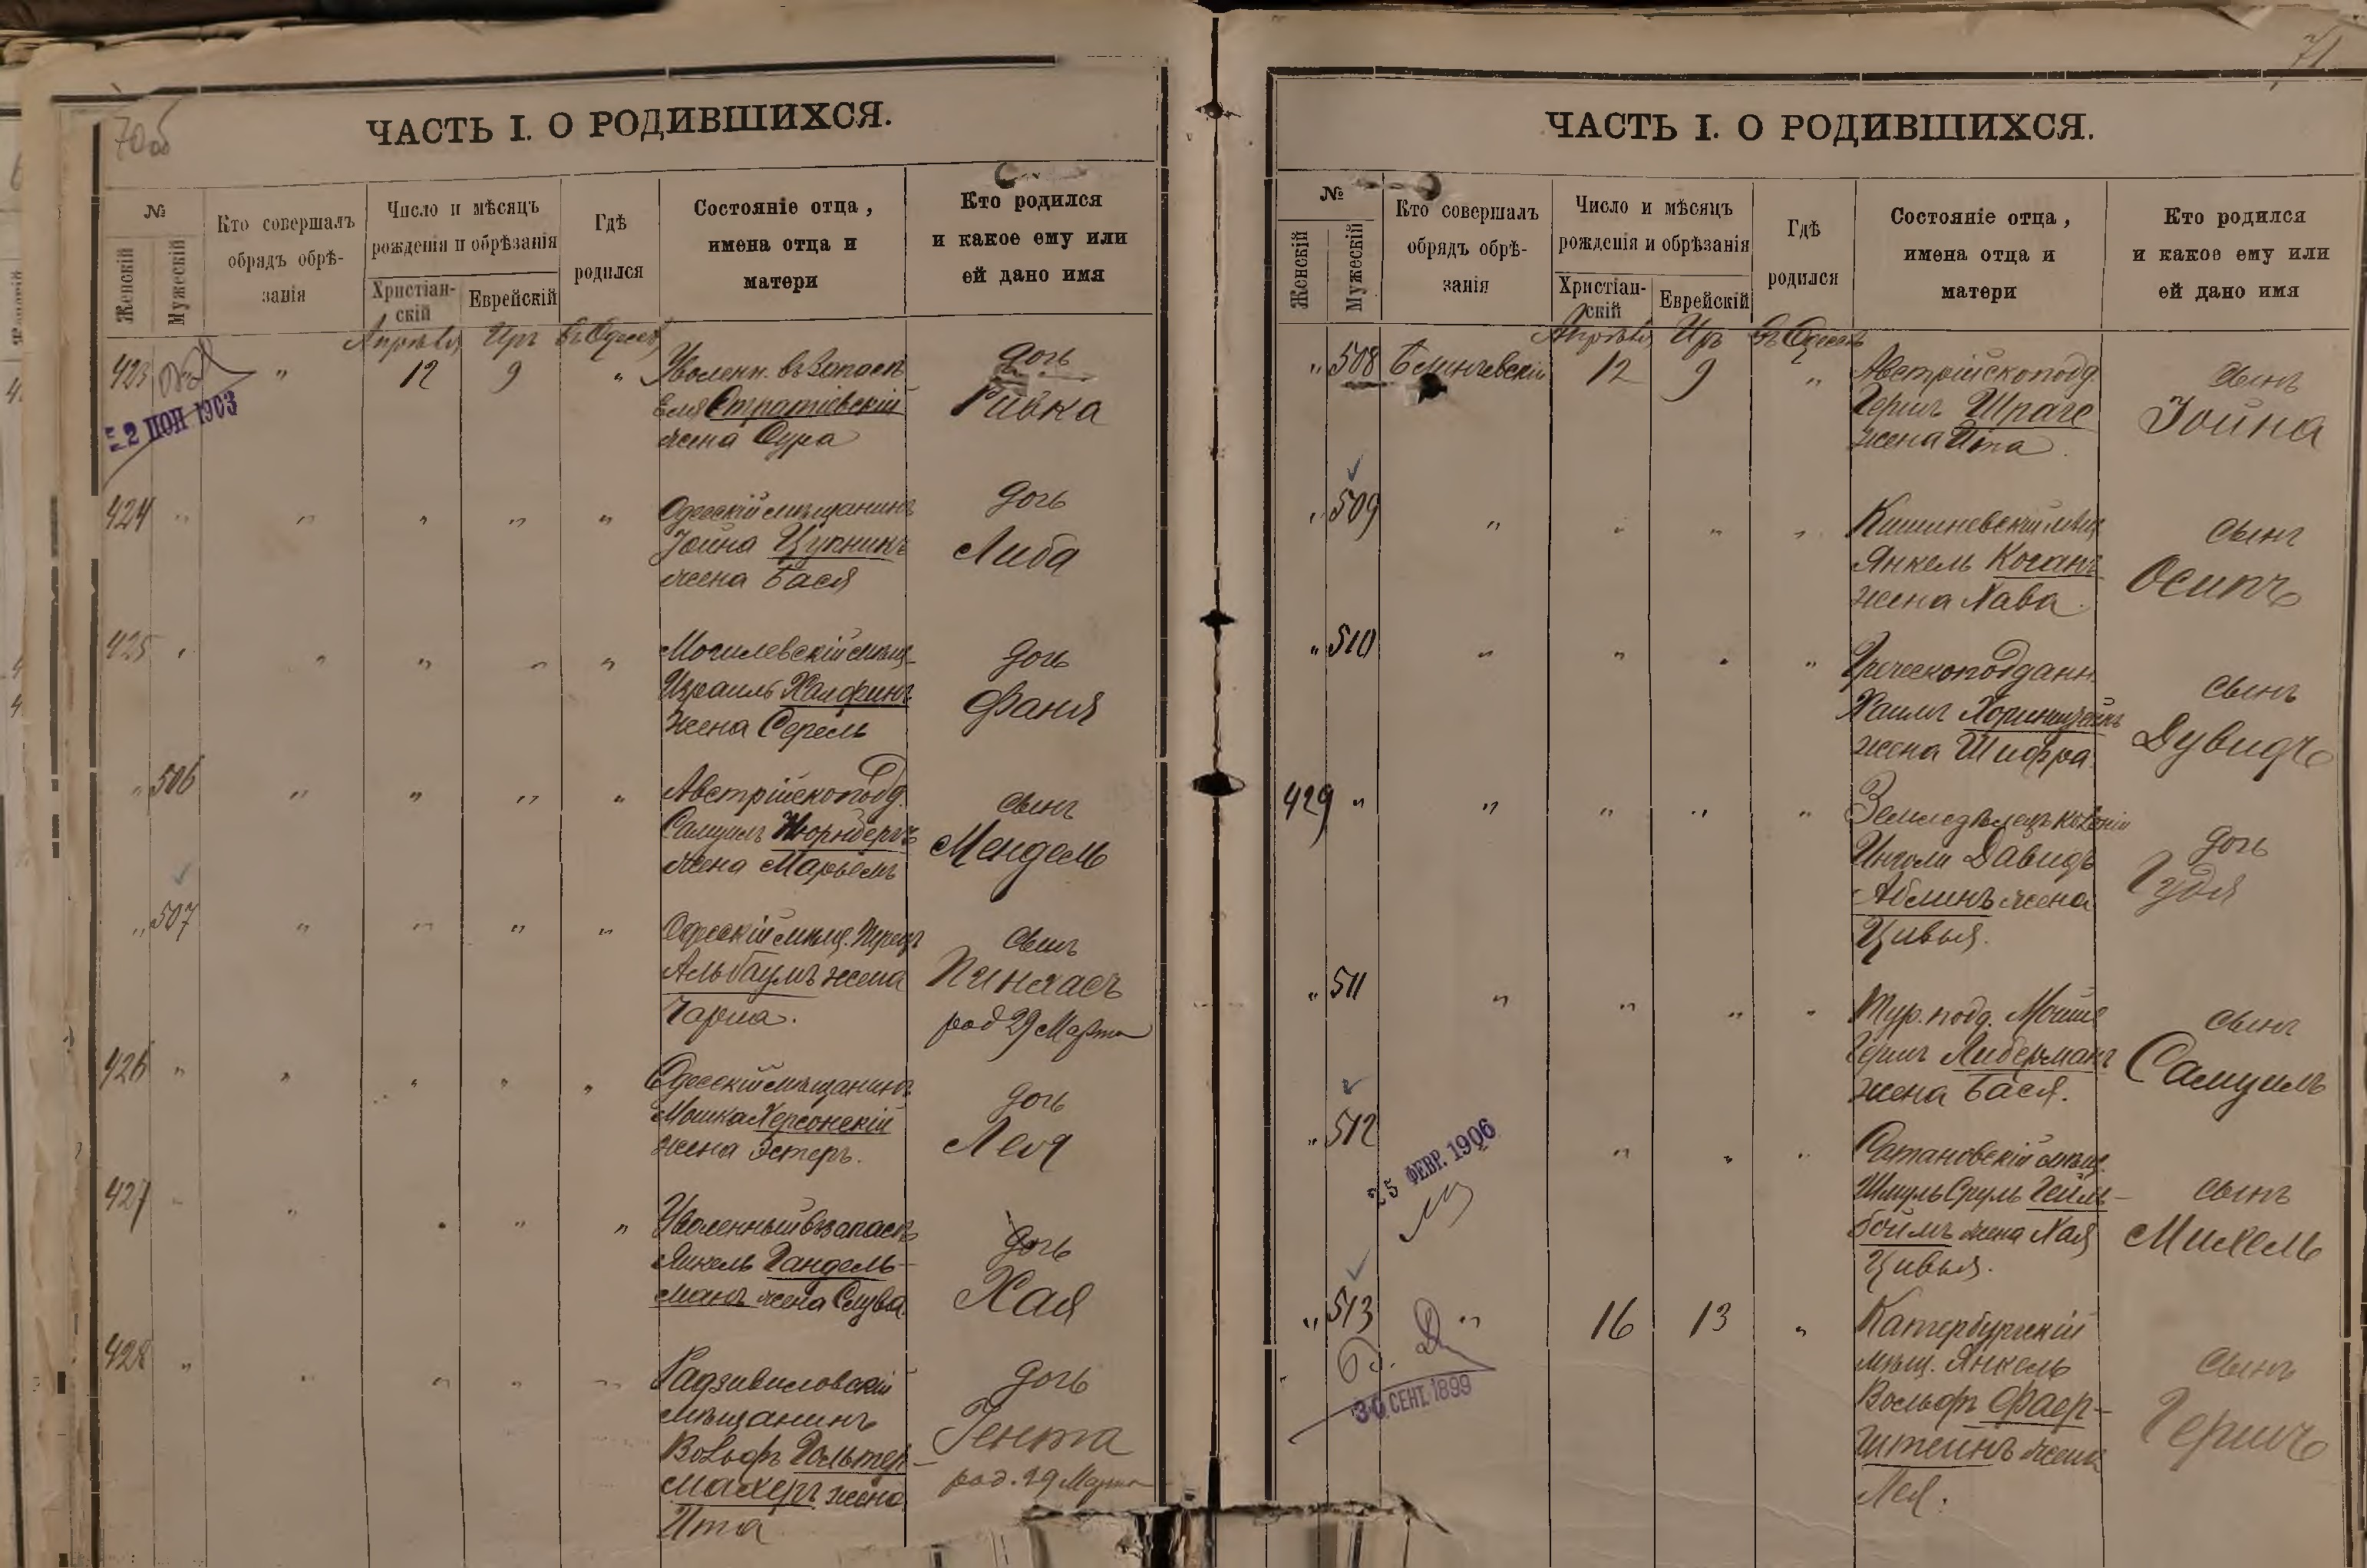 70об
ЧАСТЬ I. О РОДИВШИХСЯ.
№
Женскій
Мужескій
Кто совершалъ
обрядъ обрѣ-
занія
Число и мѣсяцъ
рожденія и обрѣзанія
Христіан-
скій
Еврейскій
Гдѣ
родился
Состояніе отца,
имена отца и
матери
Кто родился
и какое ему или
ей дано имя
Апрѣля Иръ въ Одессѣ
423 " 12 9 "
2 ІЮН 1903
Уволенн. въ запасъ
Еля Стратіевскій
жена Сура
дочь
Ривка
424 " " " " "
Одесскій мѣщанинъ
Іойна Цупникъ
жена Бася
дочь
Либа
425 " " " " "
Могилевскій мѣщ.
Израиль Халфинъ
жена Серель
дочь
Фаня
" 506 " " " "
Австрійскопод.
Самуилъ Нюрнбергъ
жена Марьемъ
сынъ
Мендель
" 507 " " " "
Одесскій мѣщ. Перецъ
Альбаумъ жена
Чарна.
сынъ
Пинхасъ
род 29 Марта
426 " " " " "
Одесскій мѣщанинъ
Мошка Херсонскій
жена Эстеръ.
дочь
Лея
427 " " " " "
Уволенный въ запасъ
Янкель Гандель-
манъ жена Слува
дочь
Хая
428 " " " " "
Радзивиловскій
мѣщанинъ
Вольфъ Гольтер-
махеръ жена
Ита
дочь
Гента
род. 29 Марта
71
ЧАСТЬ I. О РОДИВШИХСЯ.
№
Женскій
Мужескій
Кто совершалъ
обрядъ обрѣ-
занія
Число и мѣсяцъ
рожденія и обрѣзанія
Христіан-
скій
Еврейскій
Гдѣ
родился
Состояніе отца,
имена отца и
матери
Кто родился
и какое ему или
ей дано имя
Апрѣля Иръ въ Одессѣ
" 508 12 9 "
Австрійскопод.
Гершъ Шраге
жена Ита
сынъ
Іойна
" 509 " " " "
Кишиневскій мѣщ
Янкель Коганъ
жена Хава.
сынъ
Осипъ
" 510 " " " "
Греческоподданн.
Хаимъ
жена Шифра.
сынъ
Дувидъ
429 " " " " "
Земледѣлецъ колоніи
Инголи Давидъ
Аблинъ жена
Цивья.
дочь
Гудя
" 511 " " " "
Тур. под. Мошка
Гершъ Либерманъ
жена Бася.
сынъ
Самуилъ
" 512 " " "
25 ФЕВР. 1906
Сатановскій мѣщ.
Шмуль Сруль Гейль-
боймъ жена Хая
Цивья.
сынъ
Михель
" 513 " 16 13 "
30 СЕНТ. 1899
Катербургскій
мѣщ. Янкель
Вольфъ Фаер-
штейнъ жена
Лея.
сынъ
Гершъ